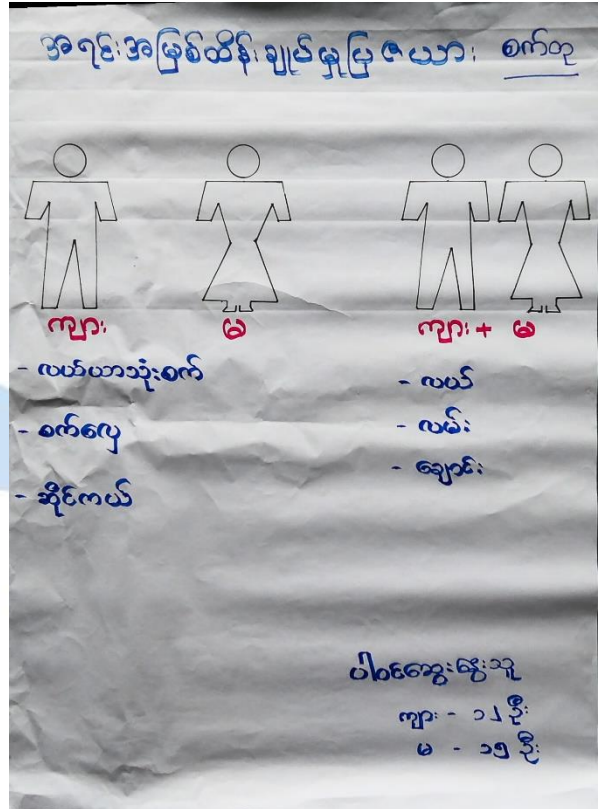 အရင်းအမြစ်ထိန်းချုပ်မှုပြဇယား စက်တု
ကျား
မ
ကျား + မ
- လယ်ယာသုံးစက်
- စက်လှေ
- ဆိုင်ကယ်
- လယ်
- လမ်း
- ချောင်း
ပါဝင်ဆွေးနွေးသူ
ကျား - ၁၂ ဦး
မ - ၁၅ ဦး